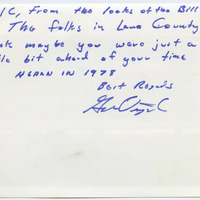 /C, From the looks of the Bill
The folks in Lane County
maybe you were just a
bit ahead of your time
IN 1978
Best Regards